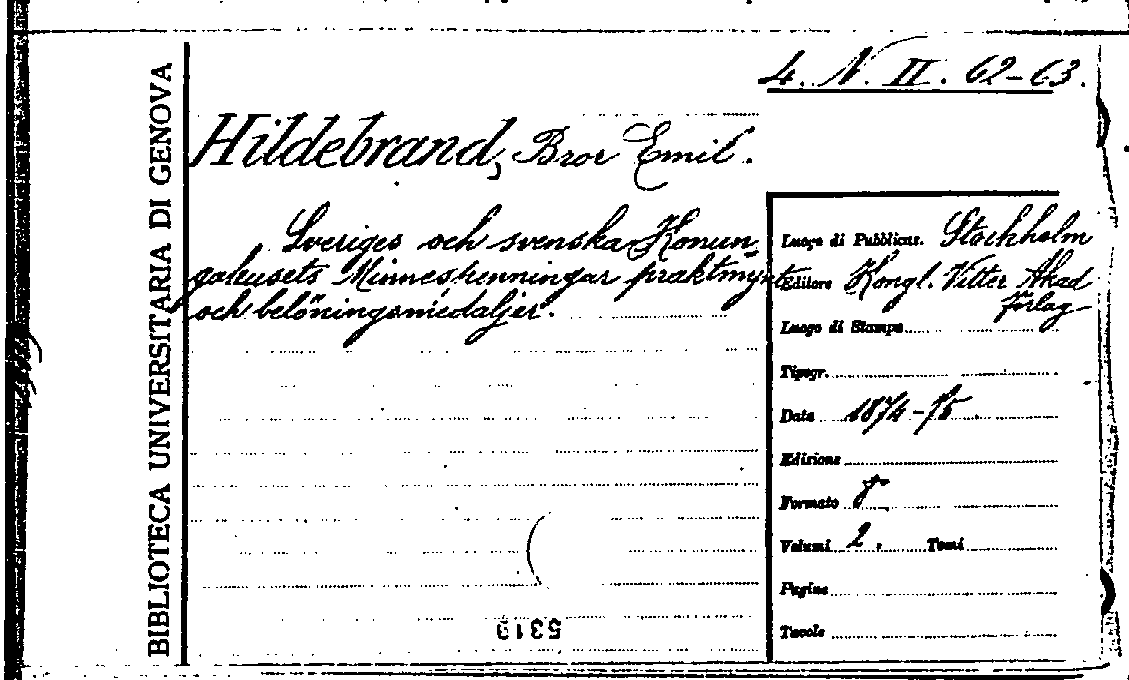 BIBLIOTECA UNIVERSITARIA DI GENOVA
4. N. II. 62-63.
Hildebrand, Bror Emil.
Sveriges och svenska Konun
gahusets Minnespenningar praktmynt
och belöningsmedaljer.
Luogo di Pubblicaz. Stockholm
Editore Kongl. Vitter Akad
Förlag
Luogo di Stampa
Tipogr.
Data 1874-75
Edizione
Formato 8
Volumi 2. Tomi
Pagine
Tavole
5319